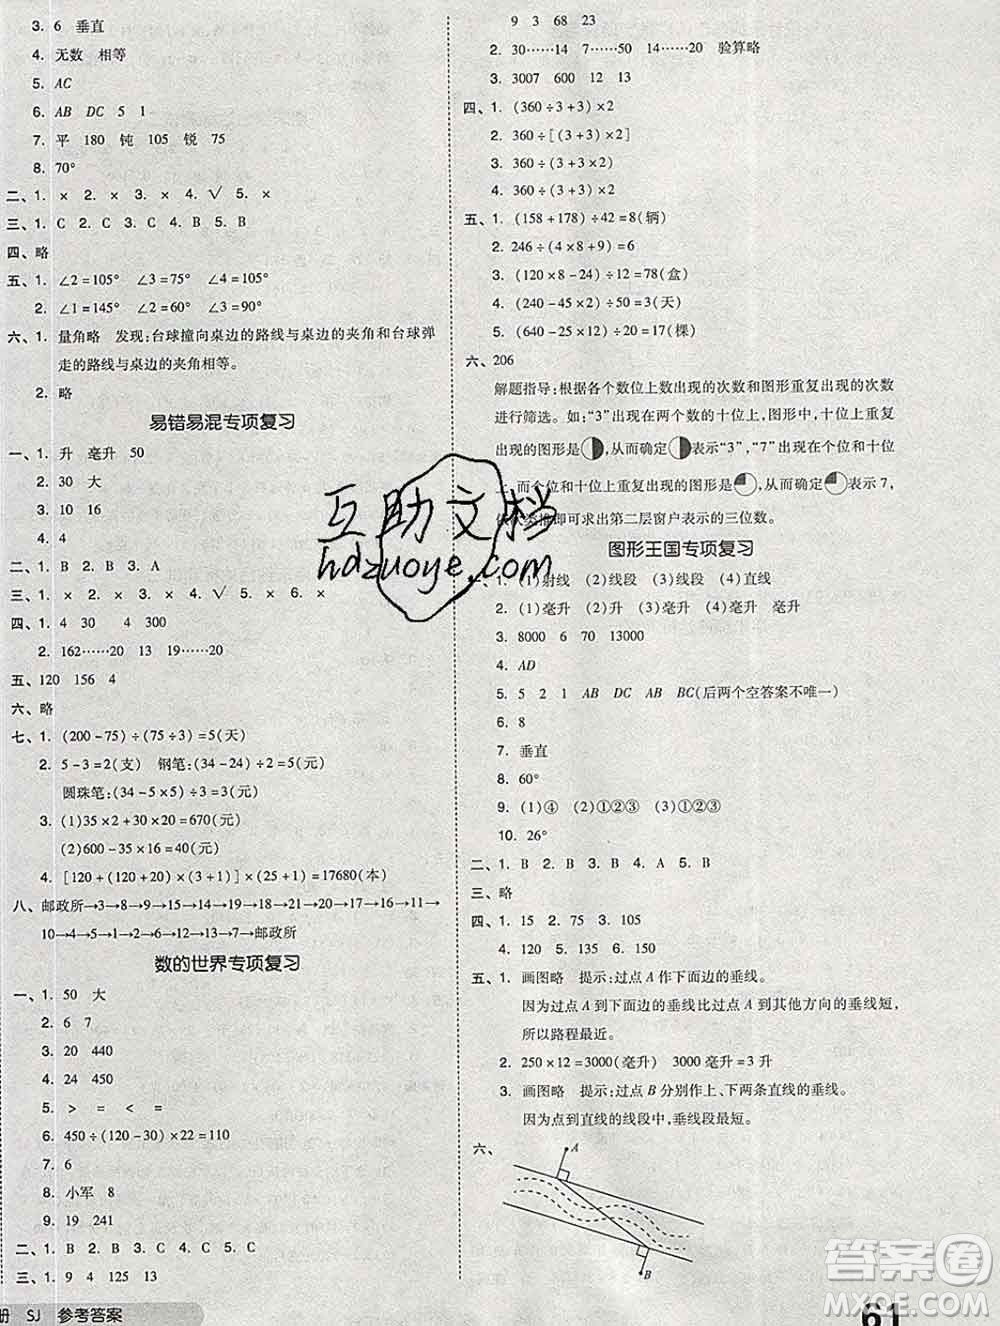 3. 6 垂直
4. 无数 相等
5. AC
6. AB DC 5 1
7. 平 180 钝 105 锐 75
8. 70°
二、1. × 2. × 3. × 4. √ 5. ×
三、1. C 2. C 3. A 4. B 5. B
四、略
五、1. ∠2=105° ∠3=75° ∠4=105°
2. ∠1=145° ∠2=55° ∠3=90°
六、1. 量角略 发现:台球撞向桌边的路线与桌边的夹角和台球弹
走的路线与桌边的夹角相等。
2. 略
易错易混专项复习
一、1. 升 毫升 50
2. 30 大
3. 10 16
4. 4
二、1. B 2. B 3. A
三、1. × 2. × 3. × 4. √ 5. × 6. ×
四、1. 4 30 4 300
2. 162……20 13 19……20
五、120 156 4
六、略
七、1. (200-75)÷(75÷3)=5(天)
2. 5-3=2(支) 钢笔:(34-24)÷2=5(元)
圆珠笔:(34-5×5)÷3=3(元)
3. (1)35×2+30×20=670(元)
(2)600-35×16=40(元)
4. [120+(120+20)×(3+1)]×(25+1)=17680(本)
八、邮政所→3→8→9→15→14→13→12→17→16→11→
10→4→5→1→2→6→7→邮政所
数的世界专项复习
一、1. 50 大
2. 6 7
3. 20 440
4. 24 450
5. > = < = >
6. 450÷(120-30)×22=110
7. 6
8. 小军 8
9. 19 241
二、1. B 2. B 3. C 4. C 5. C
三、1. 9 4 125 13
册 SJ 参考答案
9 3 68 23
2. 30……14 7……50 14……20 验算略
3. 3007 600 12 13
四、1. (360÷3+3)×2
2. 360÷[(3+3)×2]
3. 360÷(3+3×2)
4. 360÷(3+3)×2
五、1. (158+178)÷42=8(辆)
2. 246÷(4×8+9)=6
3. (120×8-24)÷12=78(盒)
4. (1200-240)÷(240÷5)=20(天)
5. (640-25×12)÷20=17(棵)
六、206
解题指导:根据各个数位上数出现的次数和图形重复出现的次数
进行筛选。如:“3”出现在两个数的十位上,图形中,重复
出现的图形是,从而确定表示“3”,“7”出现在个位和十位
上,而个位和十位上重复出现的图形是,从而确定表示7,
依次类推即可求出第二层窗户表示的三位数。
图形王国专项复习
一、1. (1)射线 (2)线段 (3)线段 (4)直线
2. (1)毫升 (2)升 (3)升 (4)毫升 毫升
3. 8000 6 70 13000
4. AD
5. 5 2 1 AB DC AB BC(后两个空答案不唯一)
6. 8
7. 垂直
8. 60°
9. (1)④ (2)①②③ (3)①②③
10. 26°
二、1. B 2. B 3. B 4. A 5. B
三、略
四、1. 15 2. 75 3. 105
4. 120 5. 135 6. 150
五、1. 画图略 提示:过点A作下面边的垂线。
因为过点A到下面边的垂线比过点A到其他方向的垂线短,
所以路程最近。
2. 250×12=3000(毫升) 3000毫升=3升
3. 画图略 提示:过点B分别作上、下两条直线的垂线。
因为点到直线的线段中,垂线段最短。
六、
A
B
61
互助文档
hdzuoye.com
答案圈
MXQE.COM